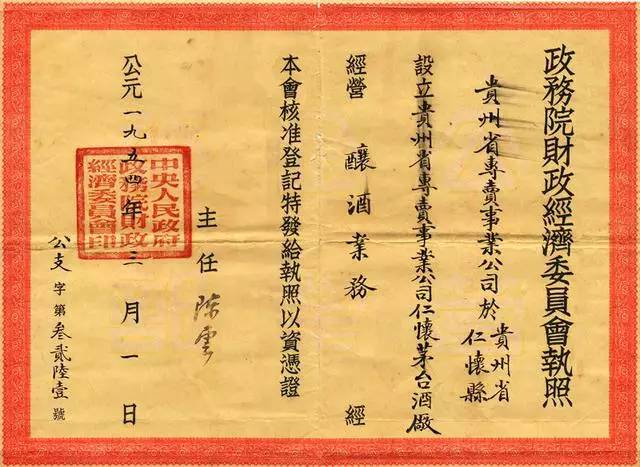 政務院財政經濟委員會執照
貴州省專賣事業公司於貴州省仁懷縣
設立貴州省專賣事業公司仁懷茅台酒廠
經營 釀酒業務 經
本會核准登記特發給執照以資憑證
主任 陳雲
中央人民政府
政務院財政
經濟委員會印
公元一九五四年三月一日
公支字第叁貳陸壹號